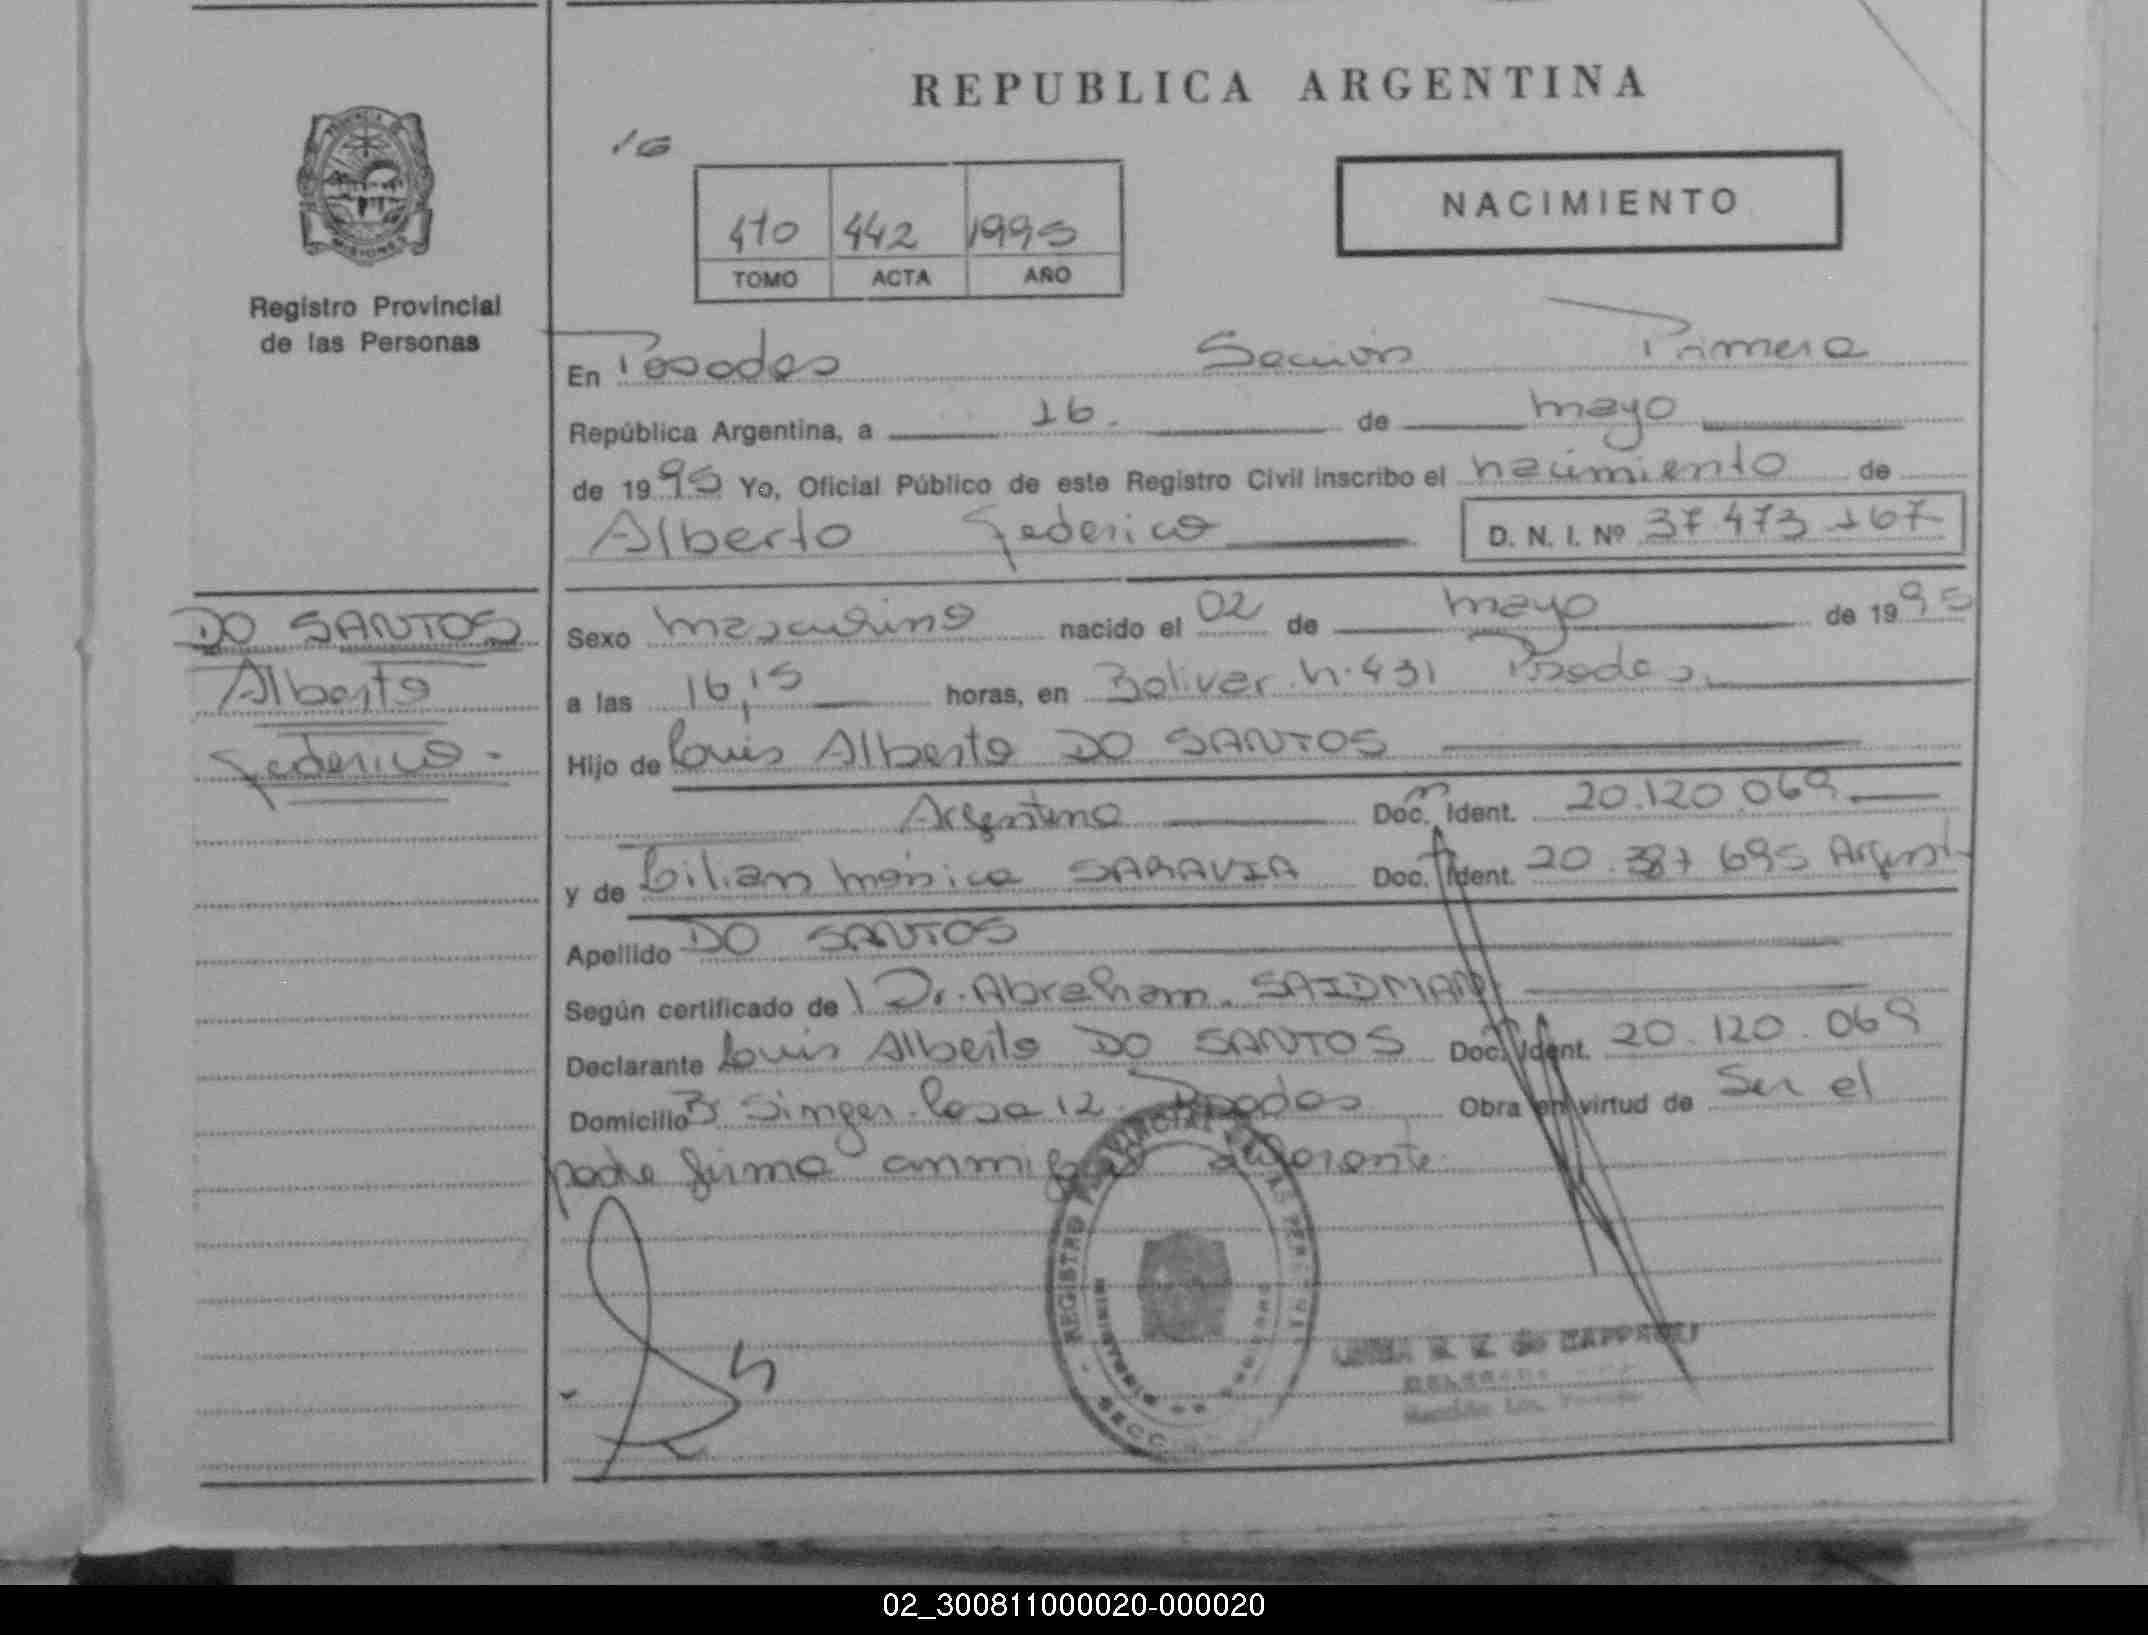 REPUBLICA ARGENTINA
16
410 442 1995
TOMO ACTA AÑO
NACIMIENTO
PROVINCIA DE
MISIONES
Registro Provincial
de las Personas
En Posadas Sección Primera
República Argentina, a 16. de mayo
de 1995 Yo, Oficial Público de este Registro Civil inscribo el nacimiento de
Alberto Federico D. N. I. Nº 37 473 167
DO SANTOS
Alberto
Federico.-
Sexo masculino nacido el 02 de mayo de 1995
a las 16,15 horas, en Bolivar n.431 Posadas.
Hijo de Luis Alberto DO SANTOS
Argentino Doc. Ident. 20.120.069
y de Lilian Mónica SARAVIA Doc. Ident. 20.387 695 Argent
Apellido DO SANTOS
Según certificado de l Dr. Abraham. SAIDMAN
Declarante Luis Alberto DO SANTOS Doc. Ident. 20.120.069
Domicilio Bº Singer. Casa 12. Posadas Obra en virtud de Ser el
padre firma conmigo
REGISTRO PROVINCIAL DE LAS PERSONAS
SECC
de ZAPPA
02_300811000020-000020